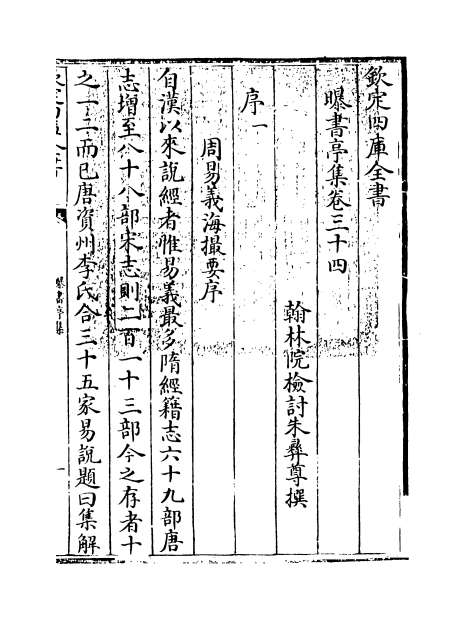 欽定四庫全書
曝書亭集卷三十四
翰林院檢討朱彝尊撰
序一
周易義海撮要序
自漢以來說經者惟易義最多隋經籍志六十九部唐
志增至八十八部宋志則二百一十三部今之存者十
之一二而已唐資州李氏合三十五家易說題曰集解
曝書亭集
一